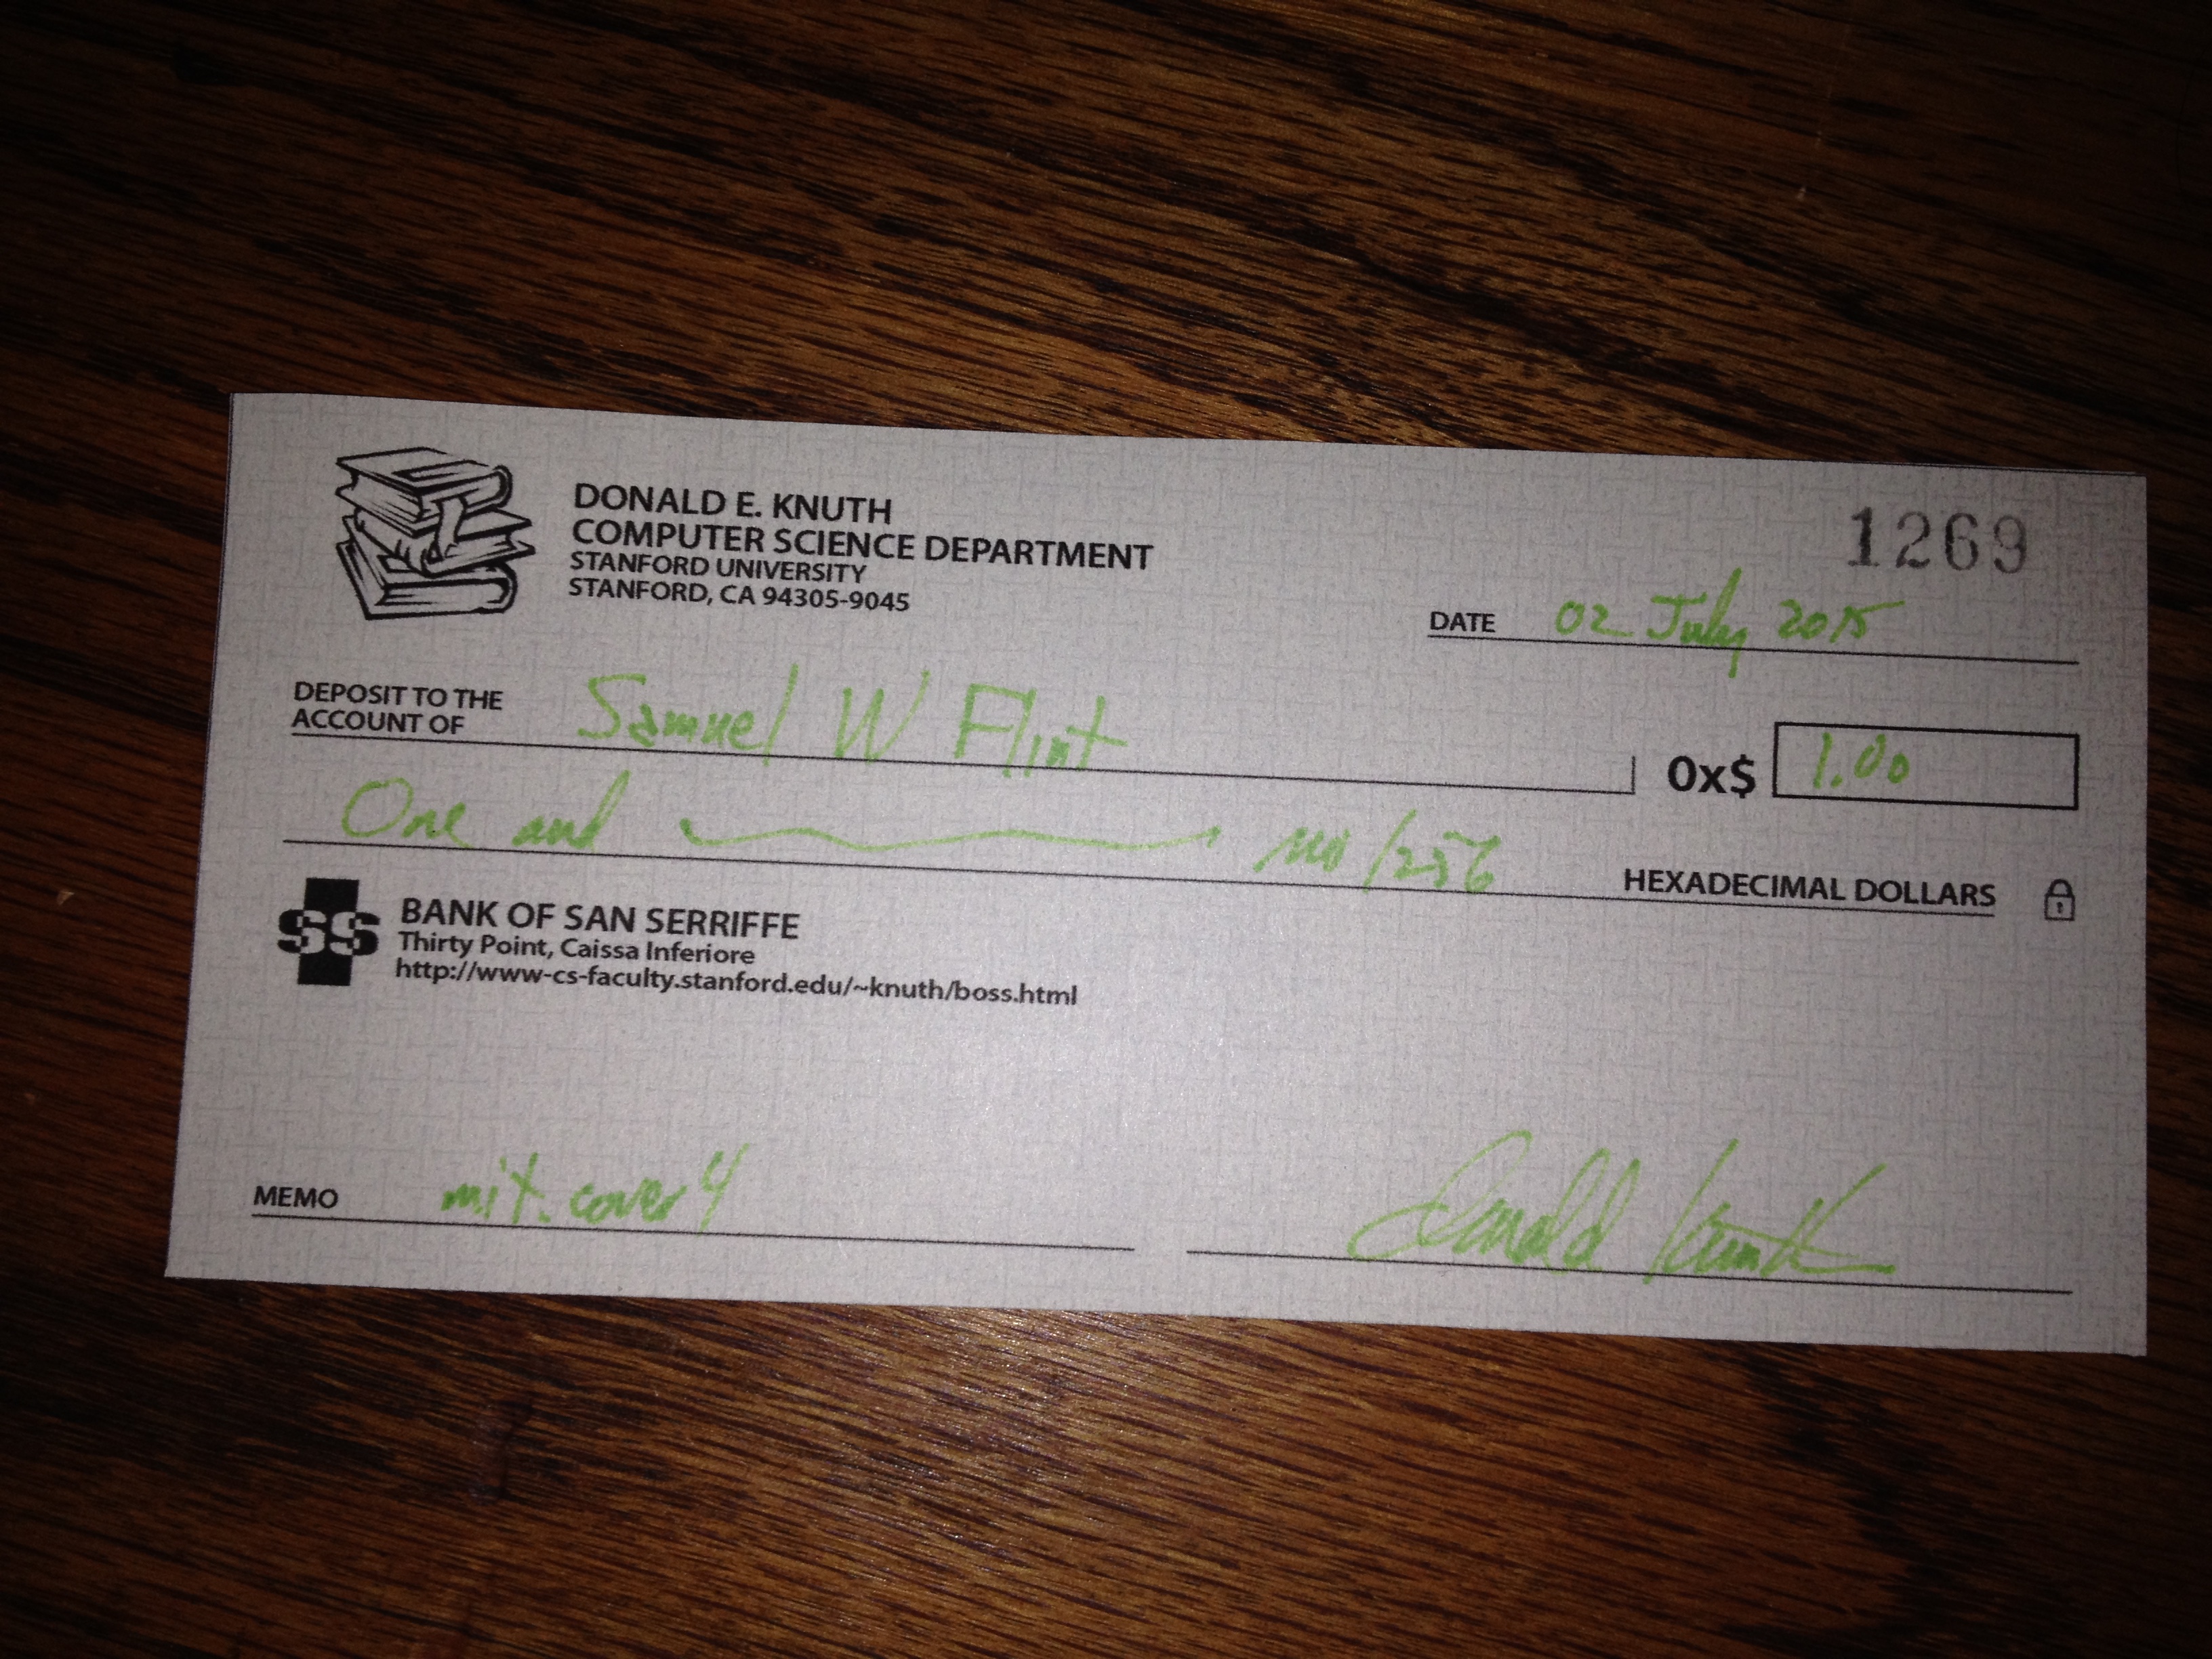 DONALD E. KNUTH
COMPUTER SCIENCE DEPARTMENT
STANFORD UNIVERSITY
STANFORD, CA 94305-9045
1269
DATE 02 July 2015
DEPOSIT TO THE
ACCOUNT OF Samuel W Flint
0x$ 1.00
One and no/256 HEXADECIMAL DOLLARS
SS
BANK OF SAN SERRIFFE
Thirty Point, Caissa Inferiore
http://www-cs-faculty.stanford.edu/~knuth/boss.html
MEMO mix. cover 4
Donald Knuth